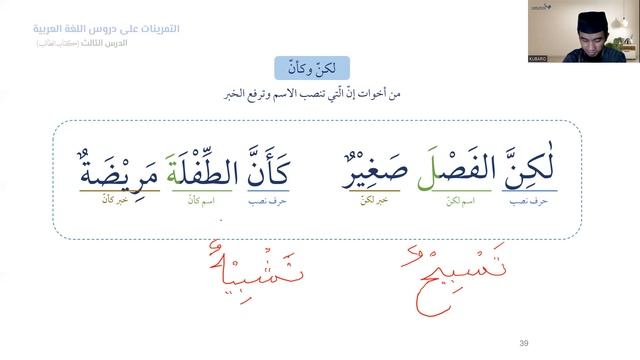 التمرينات على دروس اللغة العربية
الدرس الثالث (كتاب الطالب)
لكنّ وكأنّ
من أخوات إنّ الّتي تنصب الاسم وترفع الخبر
لٰكِنَّ الفَصْلَ صَغِيْرٌ
حرف نصب اسم لكنّ خبر لكنّ
كَأَنَّ الطِّفْلَةَ مَرِيْضَةٌ
حرف نصب اسم كأنّ خبر كأنّ
39
KUBARO